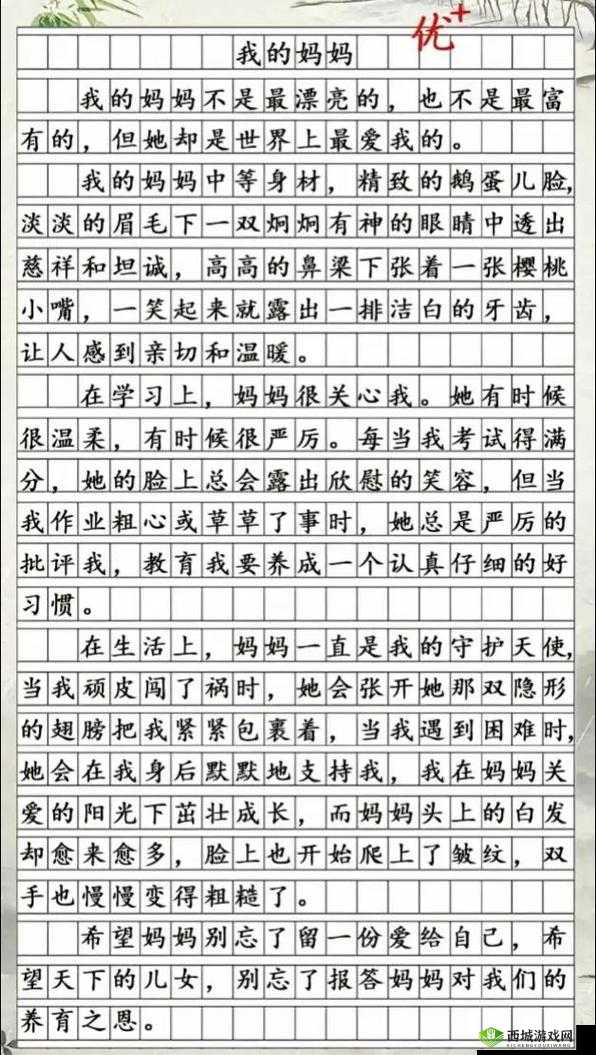 优+
我的妈妈
我的妈妈不是最漂亮的，也不是最富
有的，但她却是世界上最爱我的。
我的妈妈中等身材，精致的鹅蛋儿脸，
淡淡的眉毛下一双炯炯有神的眼睛中透出
慈祥和坦诚，高高的鼻梁下张着一张樱桃
小嘴，一笑起来就露出一排洁白的牙齿，
让人感到亲切和温暖。
在学习上，妈妈很关心我。她有时候
很温柔，有时候很严厉。每当我考试得满
分，她的脸上总会露出欣慰的笑容，但当
我作业粗心或草草了事时，她总是严厉的
批评我，教育我要养成一个认真仔细的好
习惯。
在生活上，妈妈一直是我的守护天使，
当我顽皮闯了祸时，她会张开她那双隐形
的翅膀把我紧紧包裹着，当我遇到困难时，
她会在我身后默默地支持我，我在妈妈关
爱的阳光下茁壮成长，而妈妈头上的白发
却愈来愈多，脸上也开始爬上了皱纹，双
手也慢慢变得粗糙了。
希望妈妈别忘了留一份爱给自己，希
望天下的儿女，别忘了报答妈妈对我们的
养育之恩。
西城游戏网
XICHENGYOUXIWANG